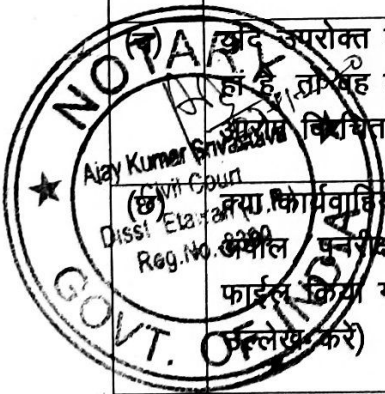 (च) यदि उपरोक्त
हां है, तो वह
आरोप विरचित
(छ) क्या कार्यवाहियों
अपील पुनरीक्षण
फाईल किया
उल्लेख करें)
NOTARY
Ajay Kumar Srivastava
Civil Court
Reg.No.
GOVT. OF INDIA